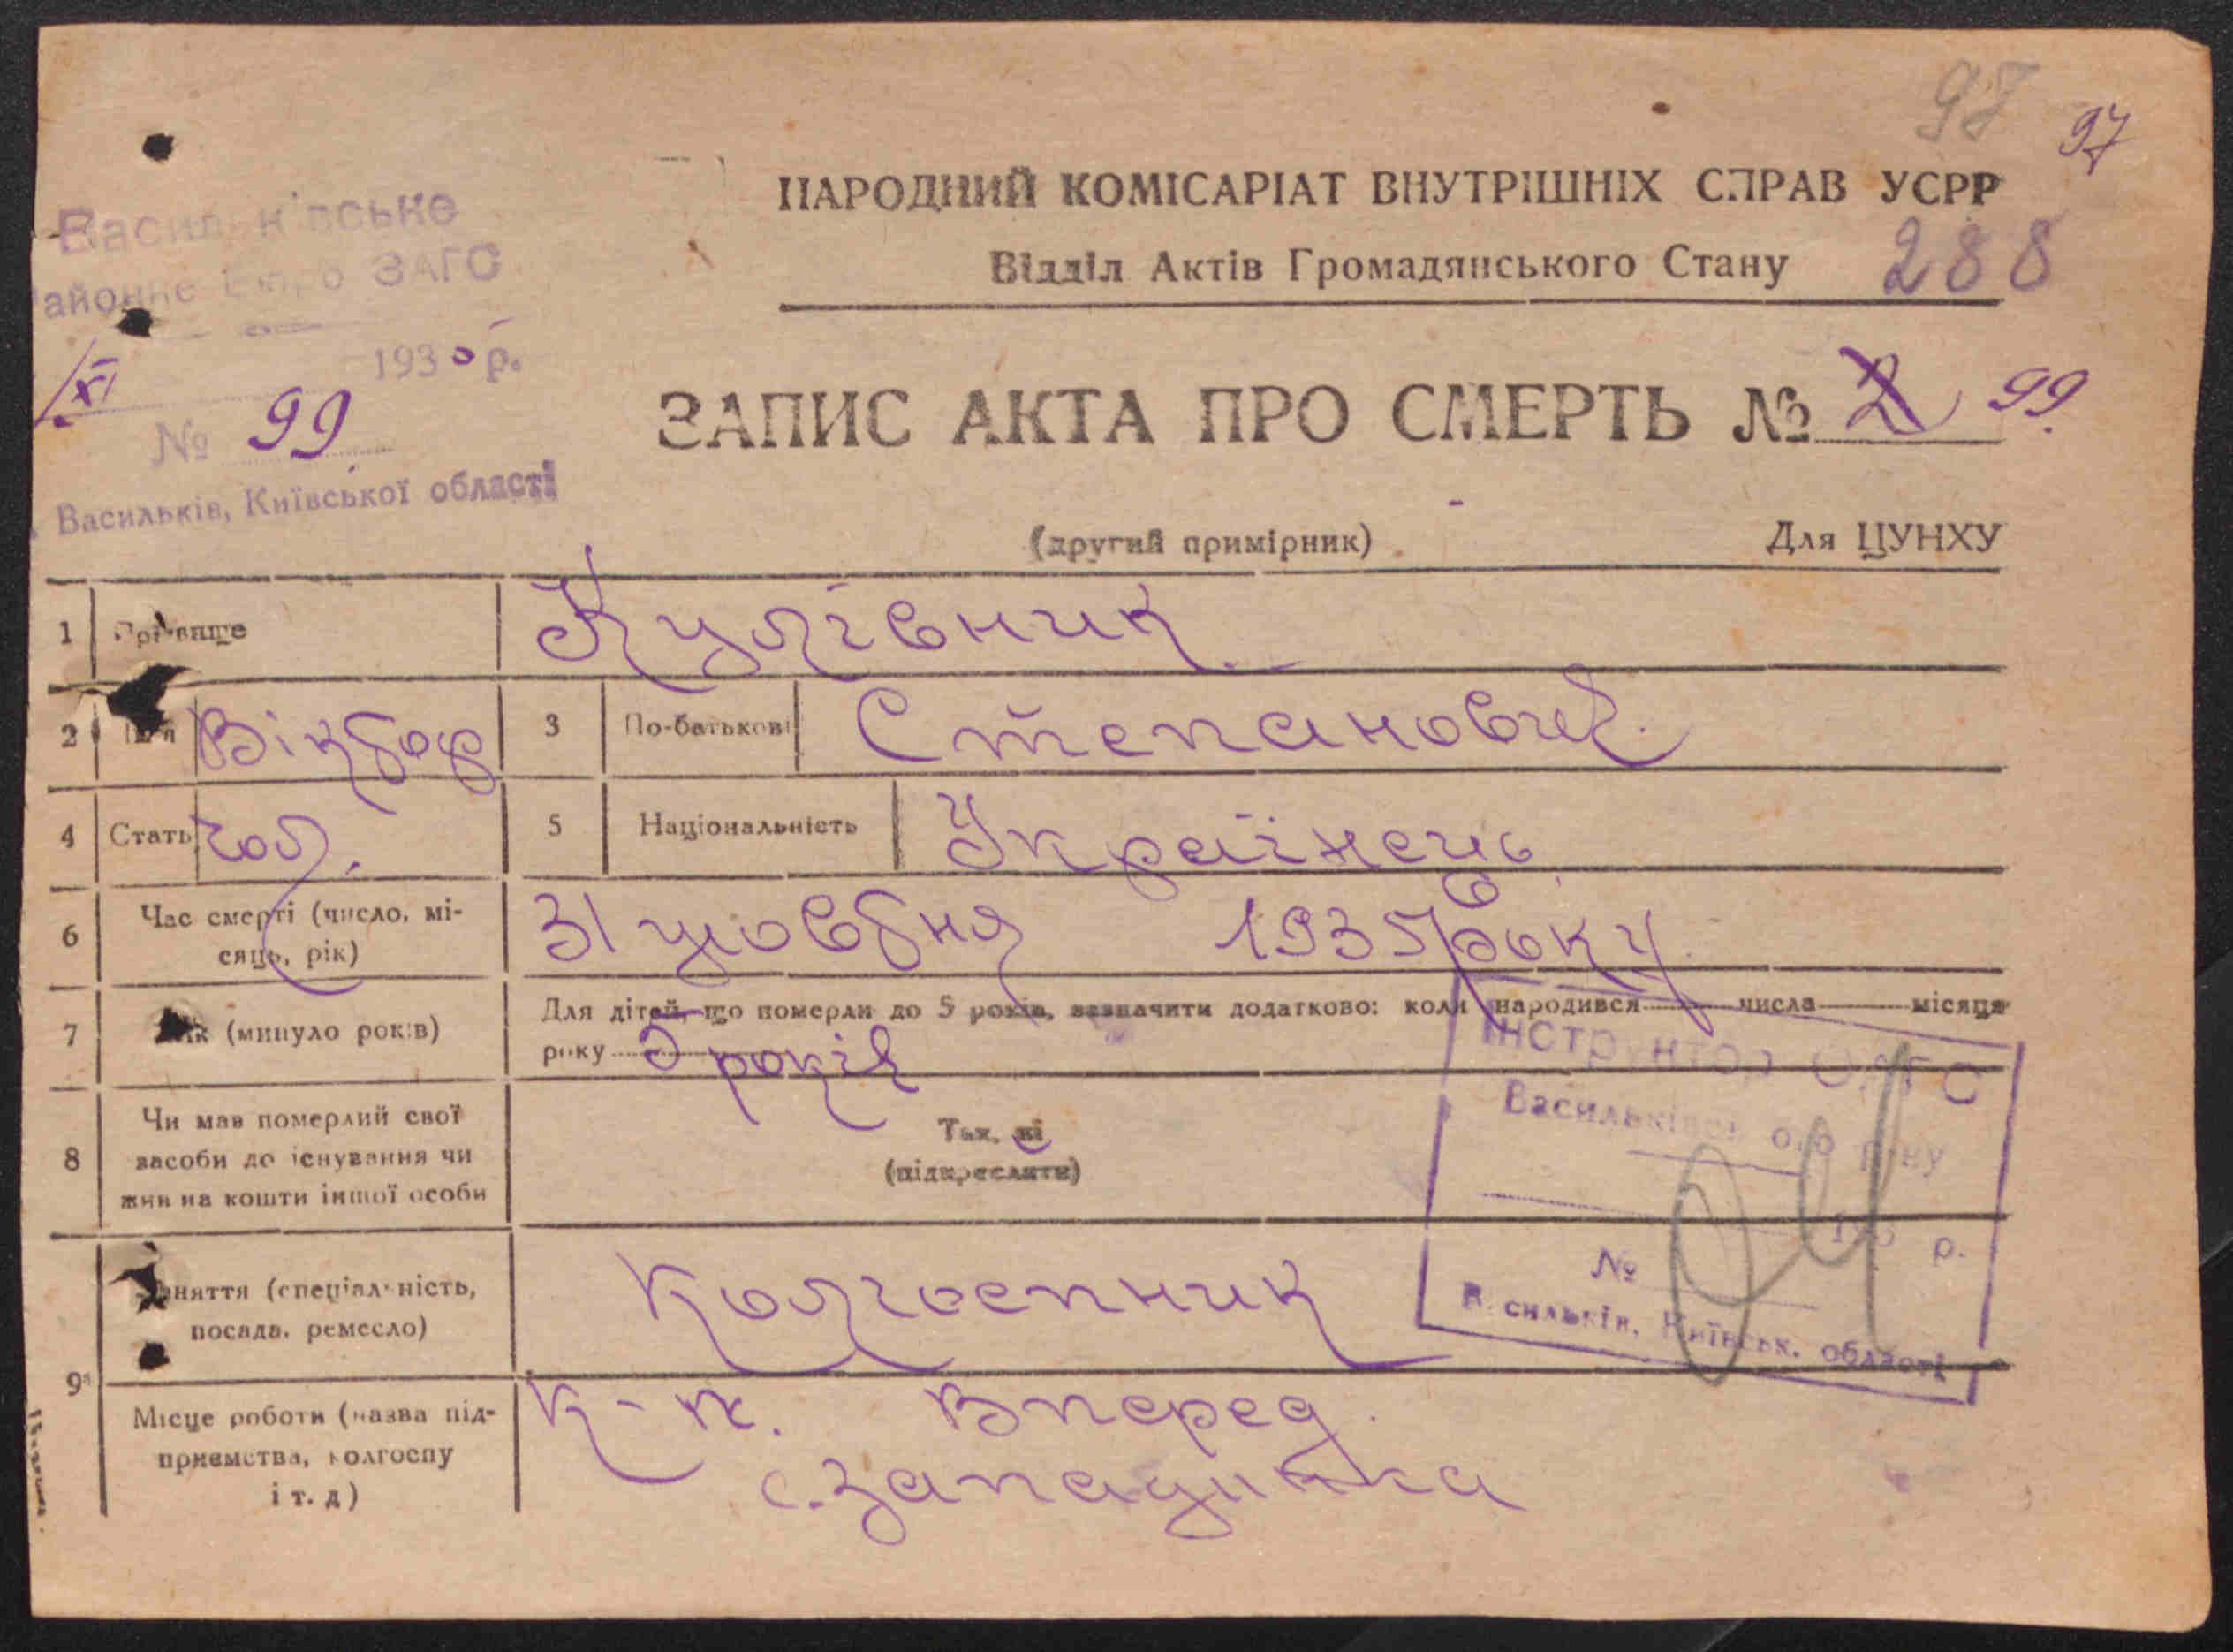 97 97
НАРОДНИЙ КОМІСАРІАТ ВНУТРІШНІХ СПРАВ УСРР
Відділ Актів Громадянського Стану 288
Васильківське
Районне Бюро ЗАГС
/XI 1935 р.
№ 99
Васильків, Київської області
ЗАПИС АКТА ПРО СМЕРТЬ № 2 99
(другий примірник) Для ЦУНХУ
1 Прізвище Кулівник
2 Ім'я Віктор 3 По-батькові Степанович
4 Стать чол. 5 Національність Українець
6 Час смерті (число, мі-
сяць, рік) 31 жовтня 1935 року
7 Вік (минуло років) Для дітей, що померли до 5 років, зазначити додатково: коли народився числа місяця
року 5 років
8 Чи мав померлий свої
засоби до існування чи
жив на кошти іншої особи
Так, ні
(підкреслити)
Інструктор ЗАГС
Васильківського р-ну
193 р.
№
Васильків, Київськ. області
9 Заняття (спеціальність,
посада, ремесло) Колгоспник
Місце роботи (назва під-
приємства, колгоспу
і т. д) К-п. Вперед
с. Западинка